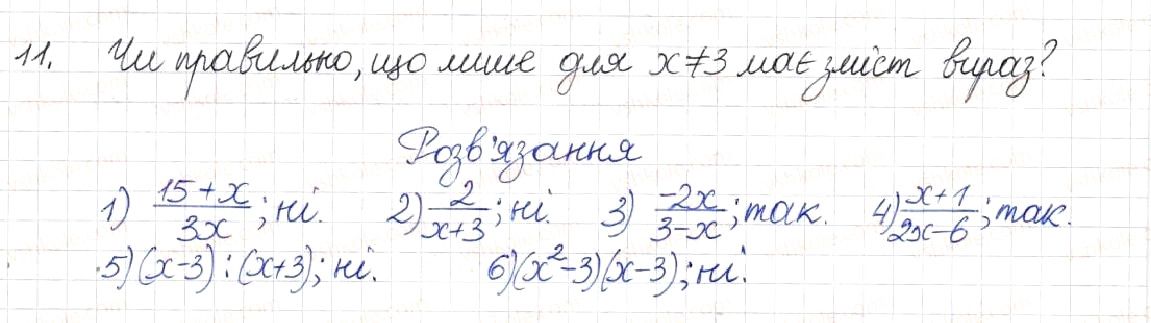 11. Чи правильно, що лише для x≠3 має зміст вираз?
Розв'язання
1) (15+x)/(3x); ні. 2) 2/(x+3); ні. 3) (-2x)/(3-x); так. 4) (x+1)/(2x-6); так.
5) (x-3):(x+3); ні. 6) (x²-3)(x-3); ні.